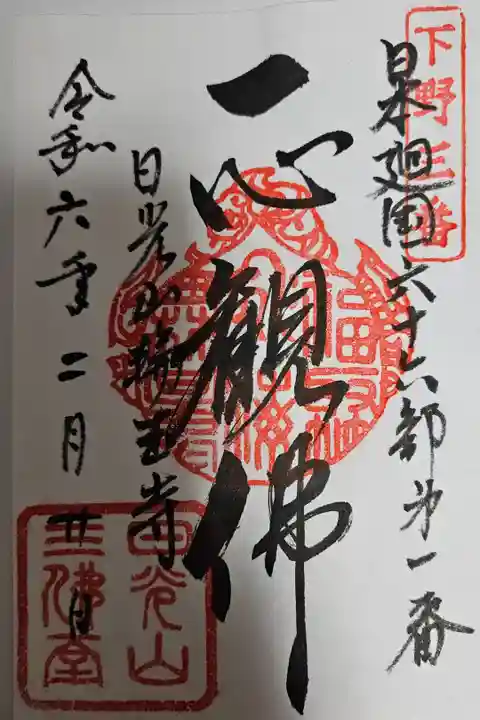 下野三番
日本廻國六十六部第一番
一心觀佛
日光山輪王寺
令和六年二月廿日
日光山
三佛堂